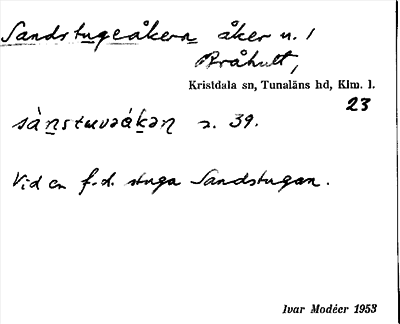 Sandstugeåkern åker u. 1
Bråhult,
Kristdala sn, Tunaläns hd, Klm. l.
23
sànstuvəåkəɳ s. 39.
Vid en f.d. stuga Sandstugan.
Ivar Modéer 1953